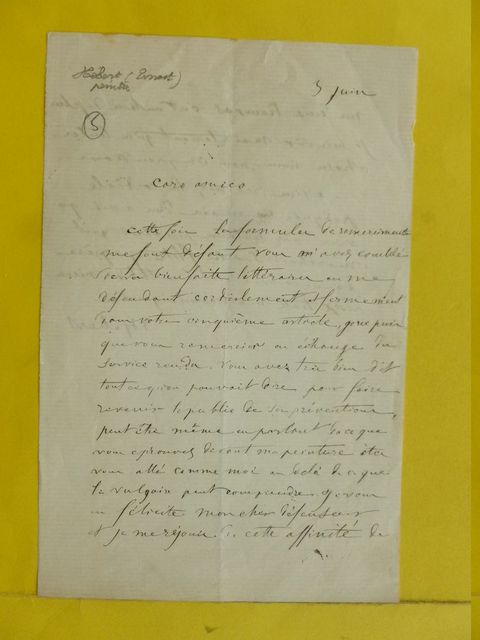 Hébert (Ernest)
peintre
5
5 juin
caro amico
cette fois les formules de remerciements
me font défaut vous m'avez comblé
de vos bienfaits littéraires en me
défendant cordialement et fermement
dans votre cinquième article, que puis
que vous remercier en échange du
service rendu. Vous avez très bien dit
tout ce qu'on pouvait dire pour faire
revenir le public de ses préventions,
peut être même en parlant de ce que
vous éprouvez devant ma peinture êtes
vous allé comme moi au delà de ce que
le vulgaire peut comprendre. Je vous
en félicite mon cher défenseur
et je me réjouis de cette affinité de